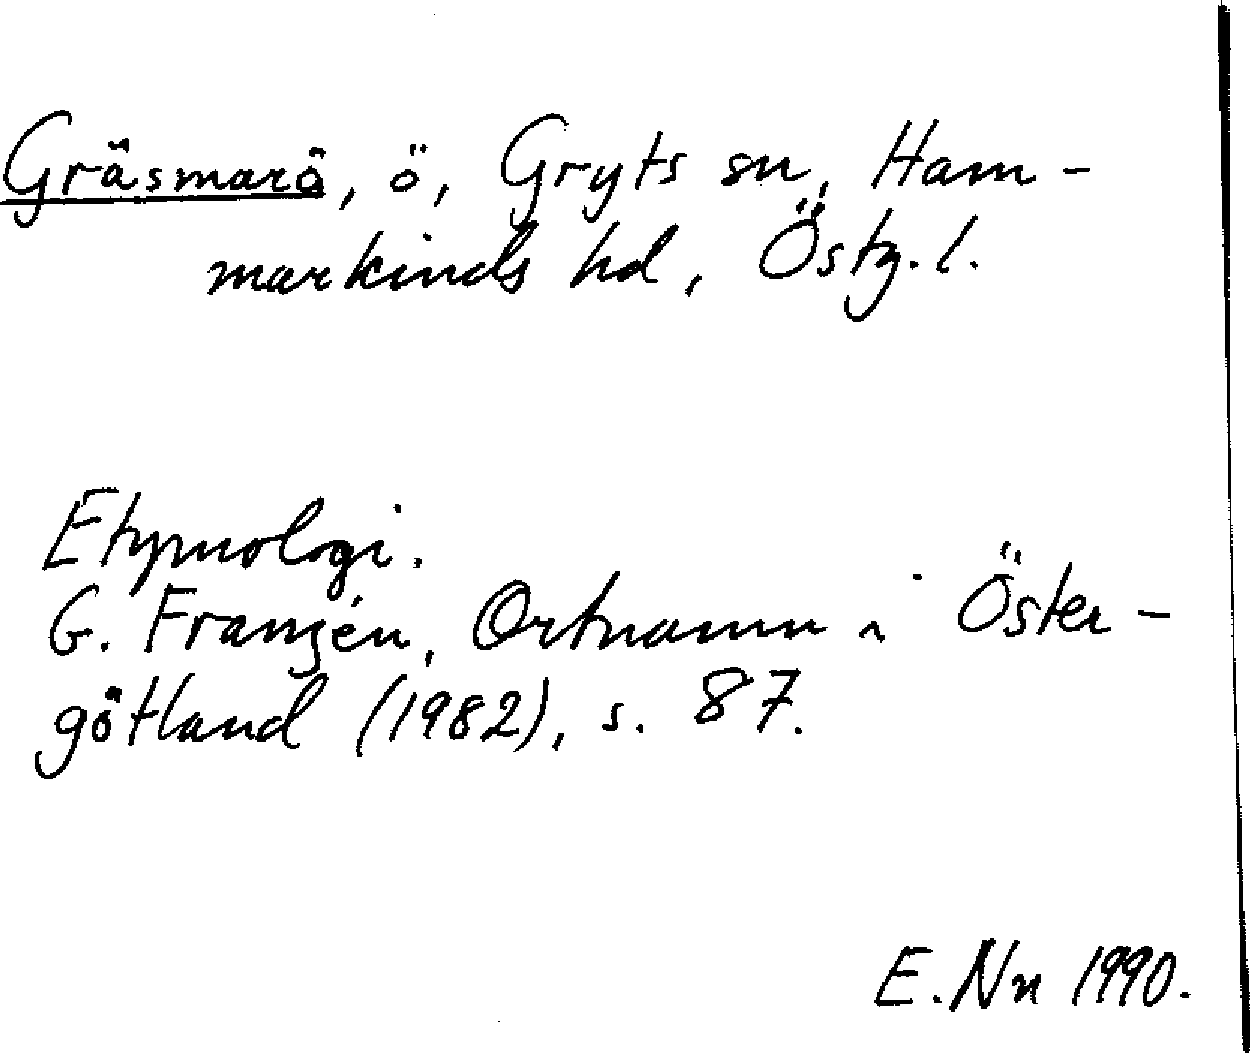 Gräsmarö, ö, Gryts sn, Ham-
markinds hd, Östg. l.
Etymologi.
G. Franzén, Ortnamn i Öster-
götland (1982), s. 87.
E. Nn 1990.